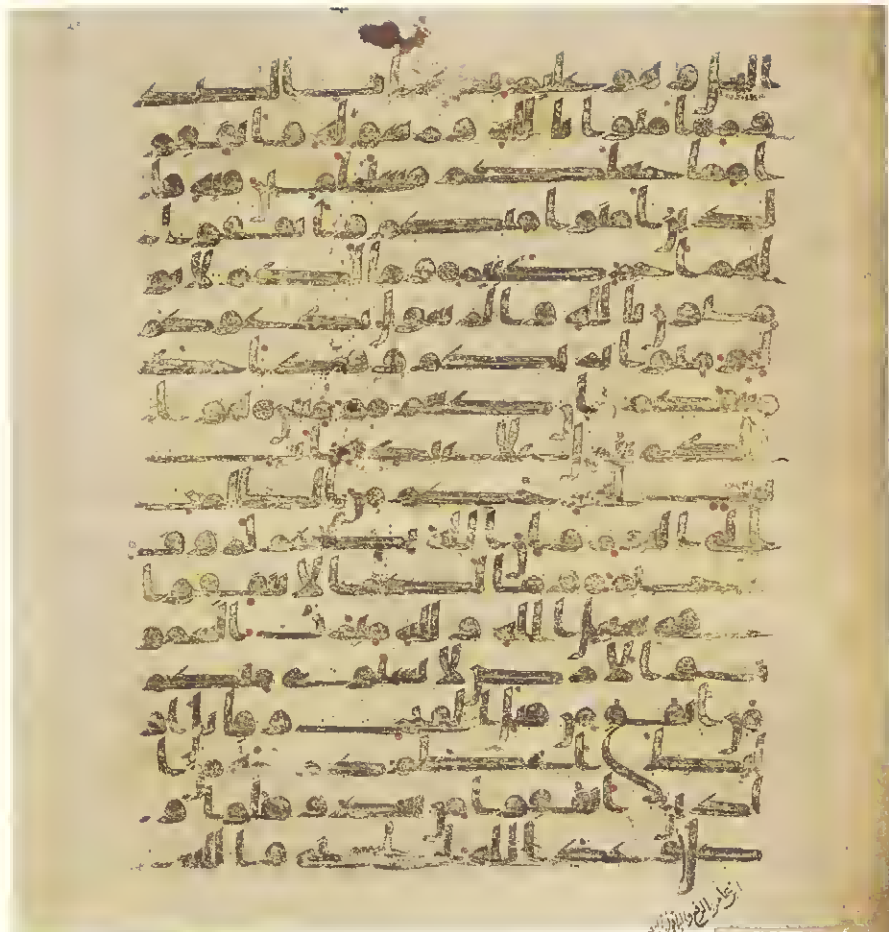 اليل و هو عليم بذات الصد
ور امنوا بالله و رسوله و انفقو
ا مما جعلكم مستخلفين فيه فا
لذين امنوا منكم و انفقوا
لهم اجر كبير و ما لكم لا تو
منون بالله و الرسول يدعوكم
لتومنوا بربكم و قد اخذ
ميثقكم ان كنتم مومنين هو ا
لذي ينزل على عبده ا
يت بينت ليخرجكم من الظلمت
الى النور و ان الله بكم لروف
رحيم و ما لكم الا تنفقوا
في سبيل الله و لله ميرث السمو
ت و الارض لا يستوي منكم
من انفق من قبل الفتح و قاتل او
لئك اعظم درجة من ا
لذين انفقوا من بعد و قتلوا و
كلا وعد الله الحسنى و الله
ابن عامر الرفع والباقون